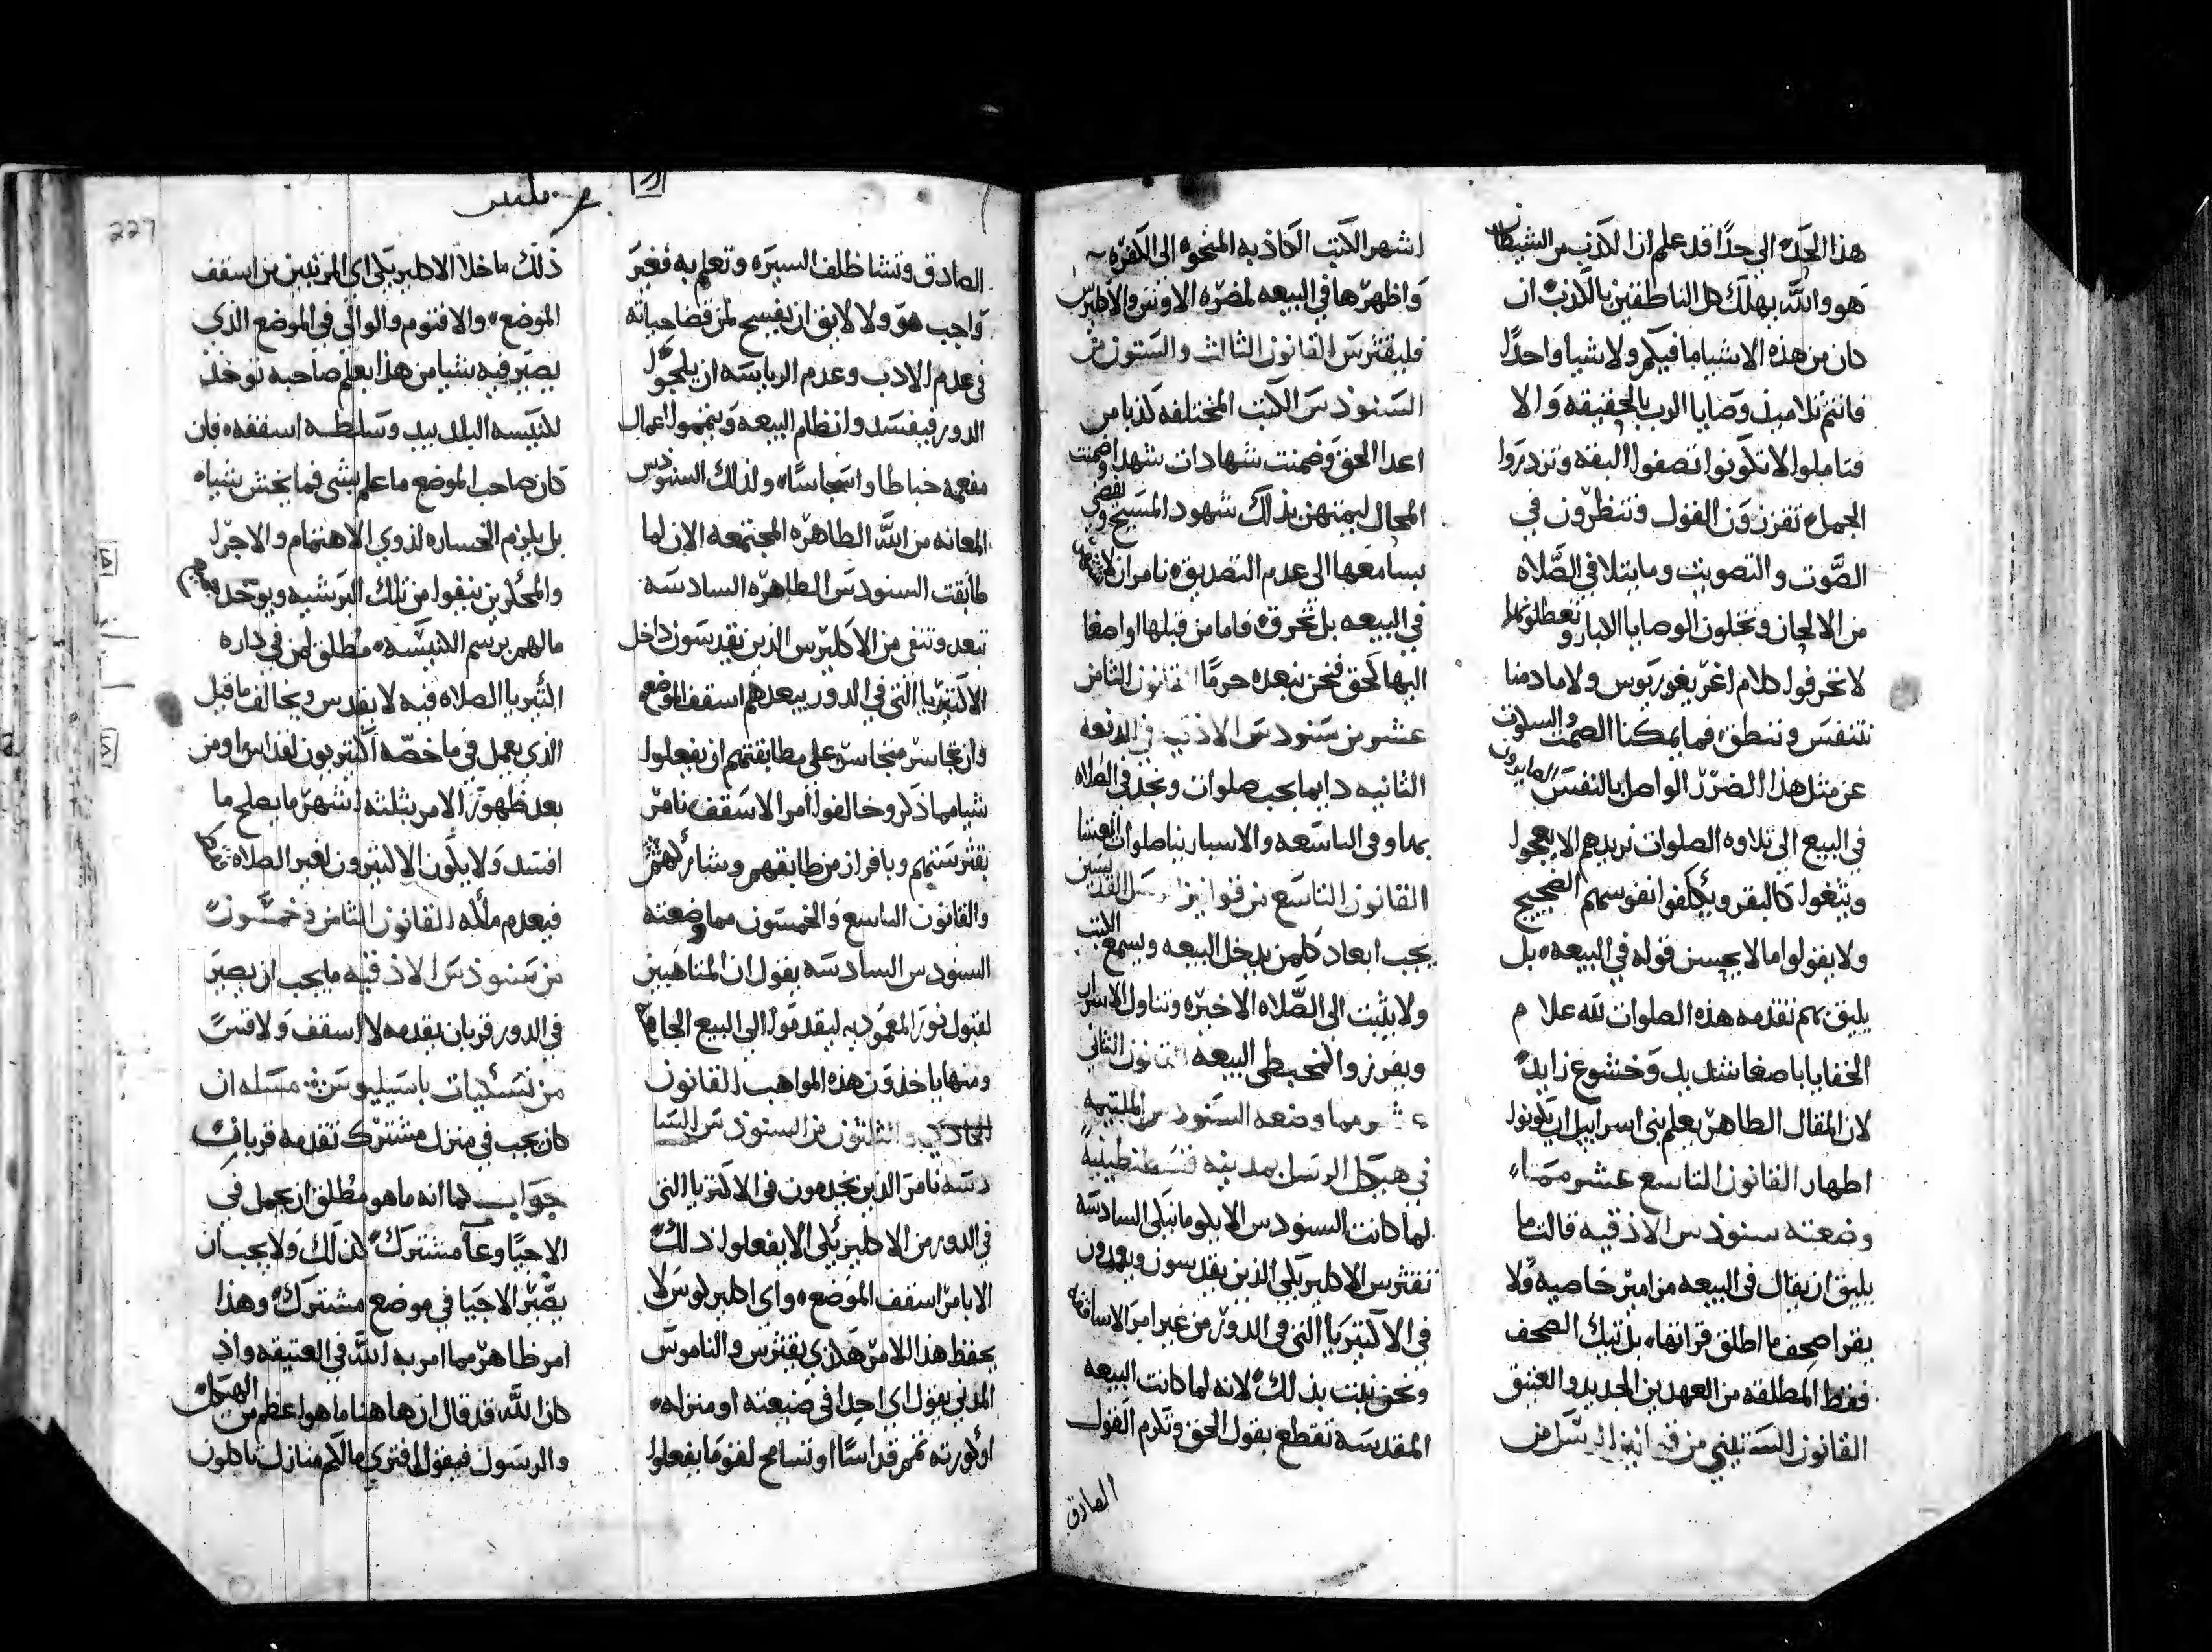 هذا الحد الى حدا قد علم ان الكذب من الشيطان
هو والله يهلك كل الناطقين بالكذب ان
كان من هذه الاشيا ما فيكم ولا شيا واحدا
فانتم تلاميذ وصايا الرب بالحقيقه والا
فتاملوا لا تكونوا تصفوا البقه وتزدردوا
الجمل تفرزون القول وتنظرون في
الصوت والتصويت وما يتلا في الصلاه
من الالحان وتخلون الوصايا الابا وتعطلونها
لا تحرفوا كلام اغريغوريوس ولا ما دمنا
نتنفس وننطق فما يمكنا الصمت والسكوت
عن مثل هذا الضرر الواصل بالنفس الصايرون
في البيع الى تلاوه الصلوات نريدهم الا يعجوا
ويثغوا كالبقر ويكلفوا نفوسهم الضجيج
ولا يقولوا ما لا يحسن قوله في البيعه بل
يليق بهم تقدمه هذه الصلوات لله علام
الخفايا باصغا شديد وخشوع زايد
لان المقال الطاهر يعلم بني اسراييل ان يكونوا
اطهار القانون التاسع عشر مما
وضعته سنودس الاذقيه قالت ما
يليق ان يقال في البيعه مزامير خاصيه ولا
يقرا صحف ما اطلق قراتها بل تيك الصحف
فقط المطلقه من العهدين الجديد والعتيق
القانون الستيني من قوانين الرسل من
اشهر الكتب الكاذبه المنحوه الى الكفره
واظهرها في البيعه لمضره الاوثن والاكليرس
فليقثرس القانون الثالث والستون من
السنودس الكتب المختلفه كذبا من
اعدا الحق وضمنت شهادات شهدا ضمنت
المحال ليمتهن بذلك شهود المسيح ويفضي
بسامعها الى عدم التصديق نامر ان لا تشهر
في البيعه بل تحرق فاما من قبلها او اصغا
اليها كحق فنحن نبعده حرما القانون الثامن
عشر من سنودس الاذقيه في الدفعه
الثانيه دايما يجب صلوات ويجد في الصلاه
بما وفي التاسعه والاسبارينا صلوات العشا
القانون التاسع من قوانين الرسل القديسين
يجب ابعاد كلمن يدخل البيعه ويسمع الكتب
ولا يثبت الى الصلاه الاخيره وتناول الاسرار
ويفرزوا كمخبطي البيعه القانون الثاني
عشر مما وضعه السنودس الملتيمه
في هيكل الرسل بمدينه قسطنطينيه
لما كانت السنودس الابلومانيكي السادسه
تقثرس الاكليريكي الذين يقدسون ويعمدون
في الاكتيريا التي في الدور من غير امر الاساقفه
ونحن نثبت بذلك لانه لما كانت البيعه
المقدسه تقطع بقول الحق وتكرم القول
الصادق
227
الصادق وتشا ظلف السيره وتعلم به فغير
واجب هو ولا لايق ان يفسح لمن قضا حياته
في عدم الادب وعدم الرياسه ان يلجوا
الدور فيفسد وانظام البيعه ويتمموا اعمال
مفعمه خباطا واسجاسا ولذلك السنودس
المعانه من الله الطاهره المجتمعه الان لما
طابقت السنودس الطاهره السادسه
تبعد وتنفي من الاكليرس الذين يقدسون داخل
الاكتيريا التي في الدور يبعدهم اسقف الموضع
وان تجاسر متجاسر على مطابقتهم ان يفعلوا
شيا مما ذكر وخالفوا امر الاسقف نامر
بقثرستهم وبافراز من طابقهم وشاركهم
والقانون التاسع والخمسون مما وضعته
السنودس السادسه يقول ان المتاهبين
لقبول نور المعموديه ليقدموا الى البيع الجامعه
ومنها ياخذون هذه المواهب القانون
الحادي والثلثون من السنودس السا
دسه نامر الذين يخدمون في الاكتريا التي
في الدور من الاكليريكي الا يفعلوا ذلك
الا بامر اسقف الموضع واي اكليريكوس لا
يحفظ هذا الامر هكذي يقثرس والناموس
المدني يقول اي احدا في ضيعته او منزله
او كورته تمم قداسا او تسامح لقوما يفعلوا
ذلك ما خلا الاكليريكي اي المرتبين من اسقف
الموضع والاقنوم والوالي في الموضع الذي
يصير فيه شيا من هذا بعلم صاحبه توخذ
لكنيسه البلد بيد وسلطه اسقفه فان
كان صاحب الموضع ما علم بشي فما يخش شياه
بل يلزم الخساره لذوي الاهتمام والاجرا
والمحلرين ينفوا من تلك البرشيه ويوخذ جميع
مالهم برسم الكنيسه مطلق لمن في داره
الثيريا الصلاه فيه لا يقدس ويخالف ما قيل
الذي يعمل في ما خصه اكتريون لقداس او من
بعد ظهور الامر بثلثه اشهر ما يصلح ما
افسد ولا يكون الاكتيرون لغير الصلاه
فيعدم ملكه القانون الثامن وخمسون
من سنودس الاذقيه ما يجب ان يصير
في الدور قربان يقدمه لا اسقف ولا قس
من نسكيات باسيليوس مسله ان
كان يجب في منزل مشترك تقدمه قربان
جواب كما انه ما هو مطلق ان يحمل في
الاجيا وعا مشترك كذلك ولا يجب ان
يصير الاجيا في موضع مشترك وهذا
امر ظاهر مما امر به الله في العتيقه واذ
كان الله قد قال ان هاهنا ما هو اعظم من الهيكل
والرسول فيقول افتري مالكم منازل تاكلون